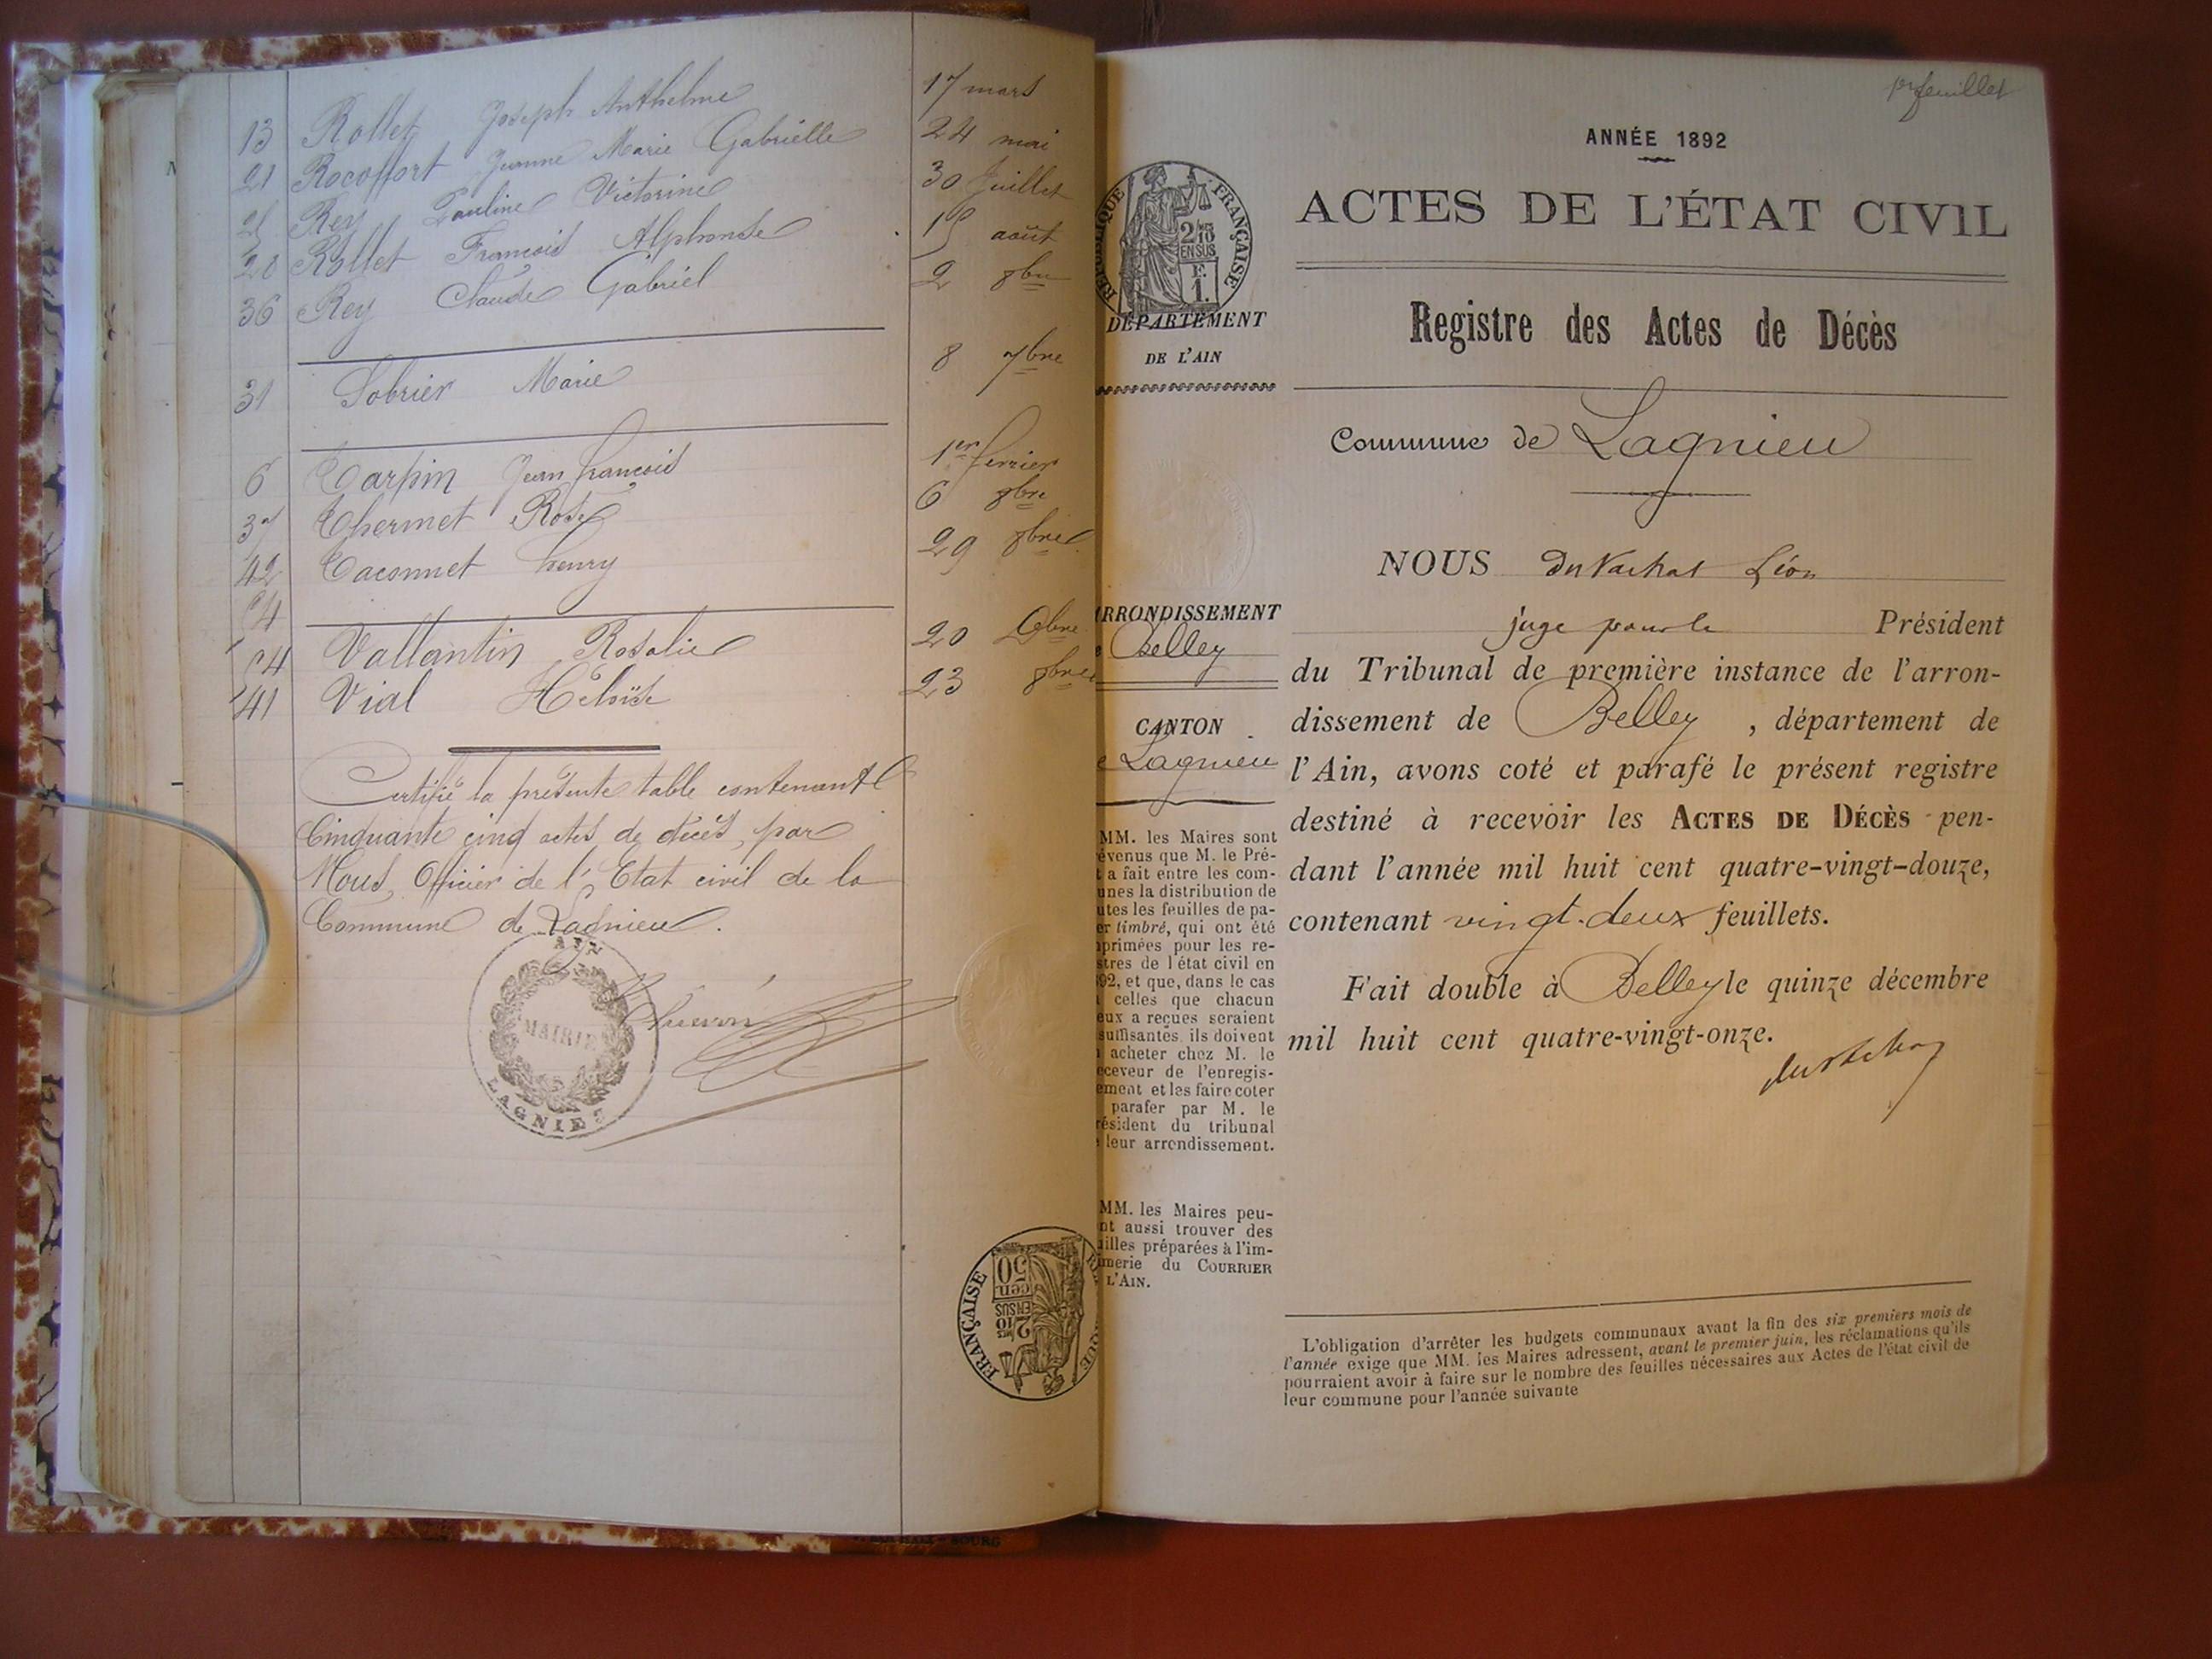 13 Rollet Joseph Anthelme 17 mars
21 Rocoffort Jeanne Marie Gabrielle 24 mai
Rey Pauline Victorine 30 Juillet
28 Rollet François Alphonse 15 août
36 Rey Claude Gabriel 2 8bre
31 Sobrier Marie 8 7bre
6 Tarpin Jean françois 1er fevrier
37 Thermet Rose 6 8bre
42 Taconnet henry 29 8bre
54 Vallantin Rosalie 20 Xbre
41 Vial Héloïse 23 8bre
Certifié la présente table contenant
Cinquante cinq actes de décès, par
Nous, Officier de l'Etat civil de la
Commune de Lagnieu.
AIN
MAIRIE
LAGNIEU
FRANÇAISE
50 cen
2/10 EN SUS
1er feuillet
ANNÉE 1892
ACTES DE L'ÉTAT CIVIL
Registre des Actes de Décès
Commune de Lagnieu
NOUS du Vachat Léon
juge pour le Président
du Tribunal de première instance de l'arron-
dissement de Belley, département de
l'Ain, avons coté et parafé le présent registre
destiné à recevoir les ACTES DE DÉCÈS pen-
dant l'année mil huit cent quatre-vingt-douze,
contenant vingt-deux feuillets.
Fait double à Belley le quinze décembre
mil huit cent quatre-vingt-onze.
RÉPUBLIQUE FRANÇAISE
2/10 EN SUS
F. 1.
DÉPARTEMENT
DE L'AIN
ARRONDISSEMENT
Belley
CANTON
Lagnieu
MM. les Maires sont
évenus que M. le Pré-
t a fait entre les com-
unes la distribution de
utes les feuilles de pa-
er timbré, qui ont été
primées pour les re-
stres de l'état civil en
92, et que, dans le cas
celles que chacun
eux a reçues seraient
suffisantes, ils doivent
acheter chez M. le
eceveur de l'enregis-
ement et les faire coter
parafer par M. le
résident du tribunal
leur arrondissement.
MM. les Maires peu-
nt aussi trouver des
illes préparées à l'im-
merie du COURRIER
L'AIN.
L'obligation d'arrêter les budgets communaux avant la fin des six premiers mois de
l'année exige que MM. les Maires adressent, avant le premier juin, les réclamations qu'ils
pourraient avoir à faire sur le nombre des feuilles nécessaires aux Actes de l'état civil de
leur commune pour l'année suivante